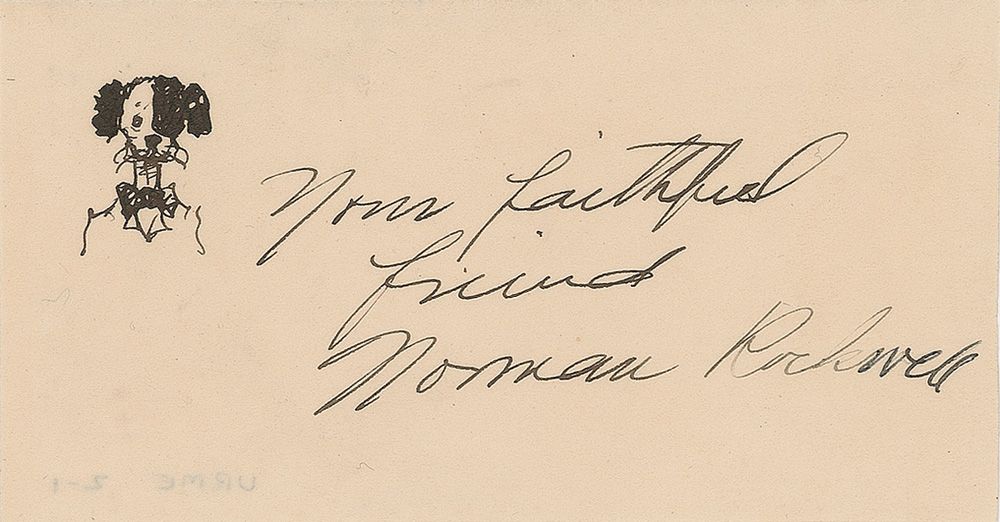 Your faithful
friend
Norman Rockwell
URME 2-1